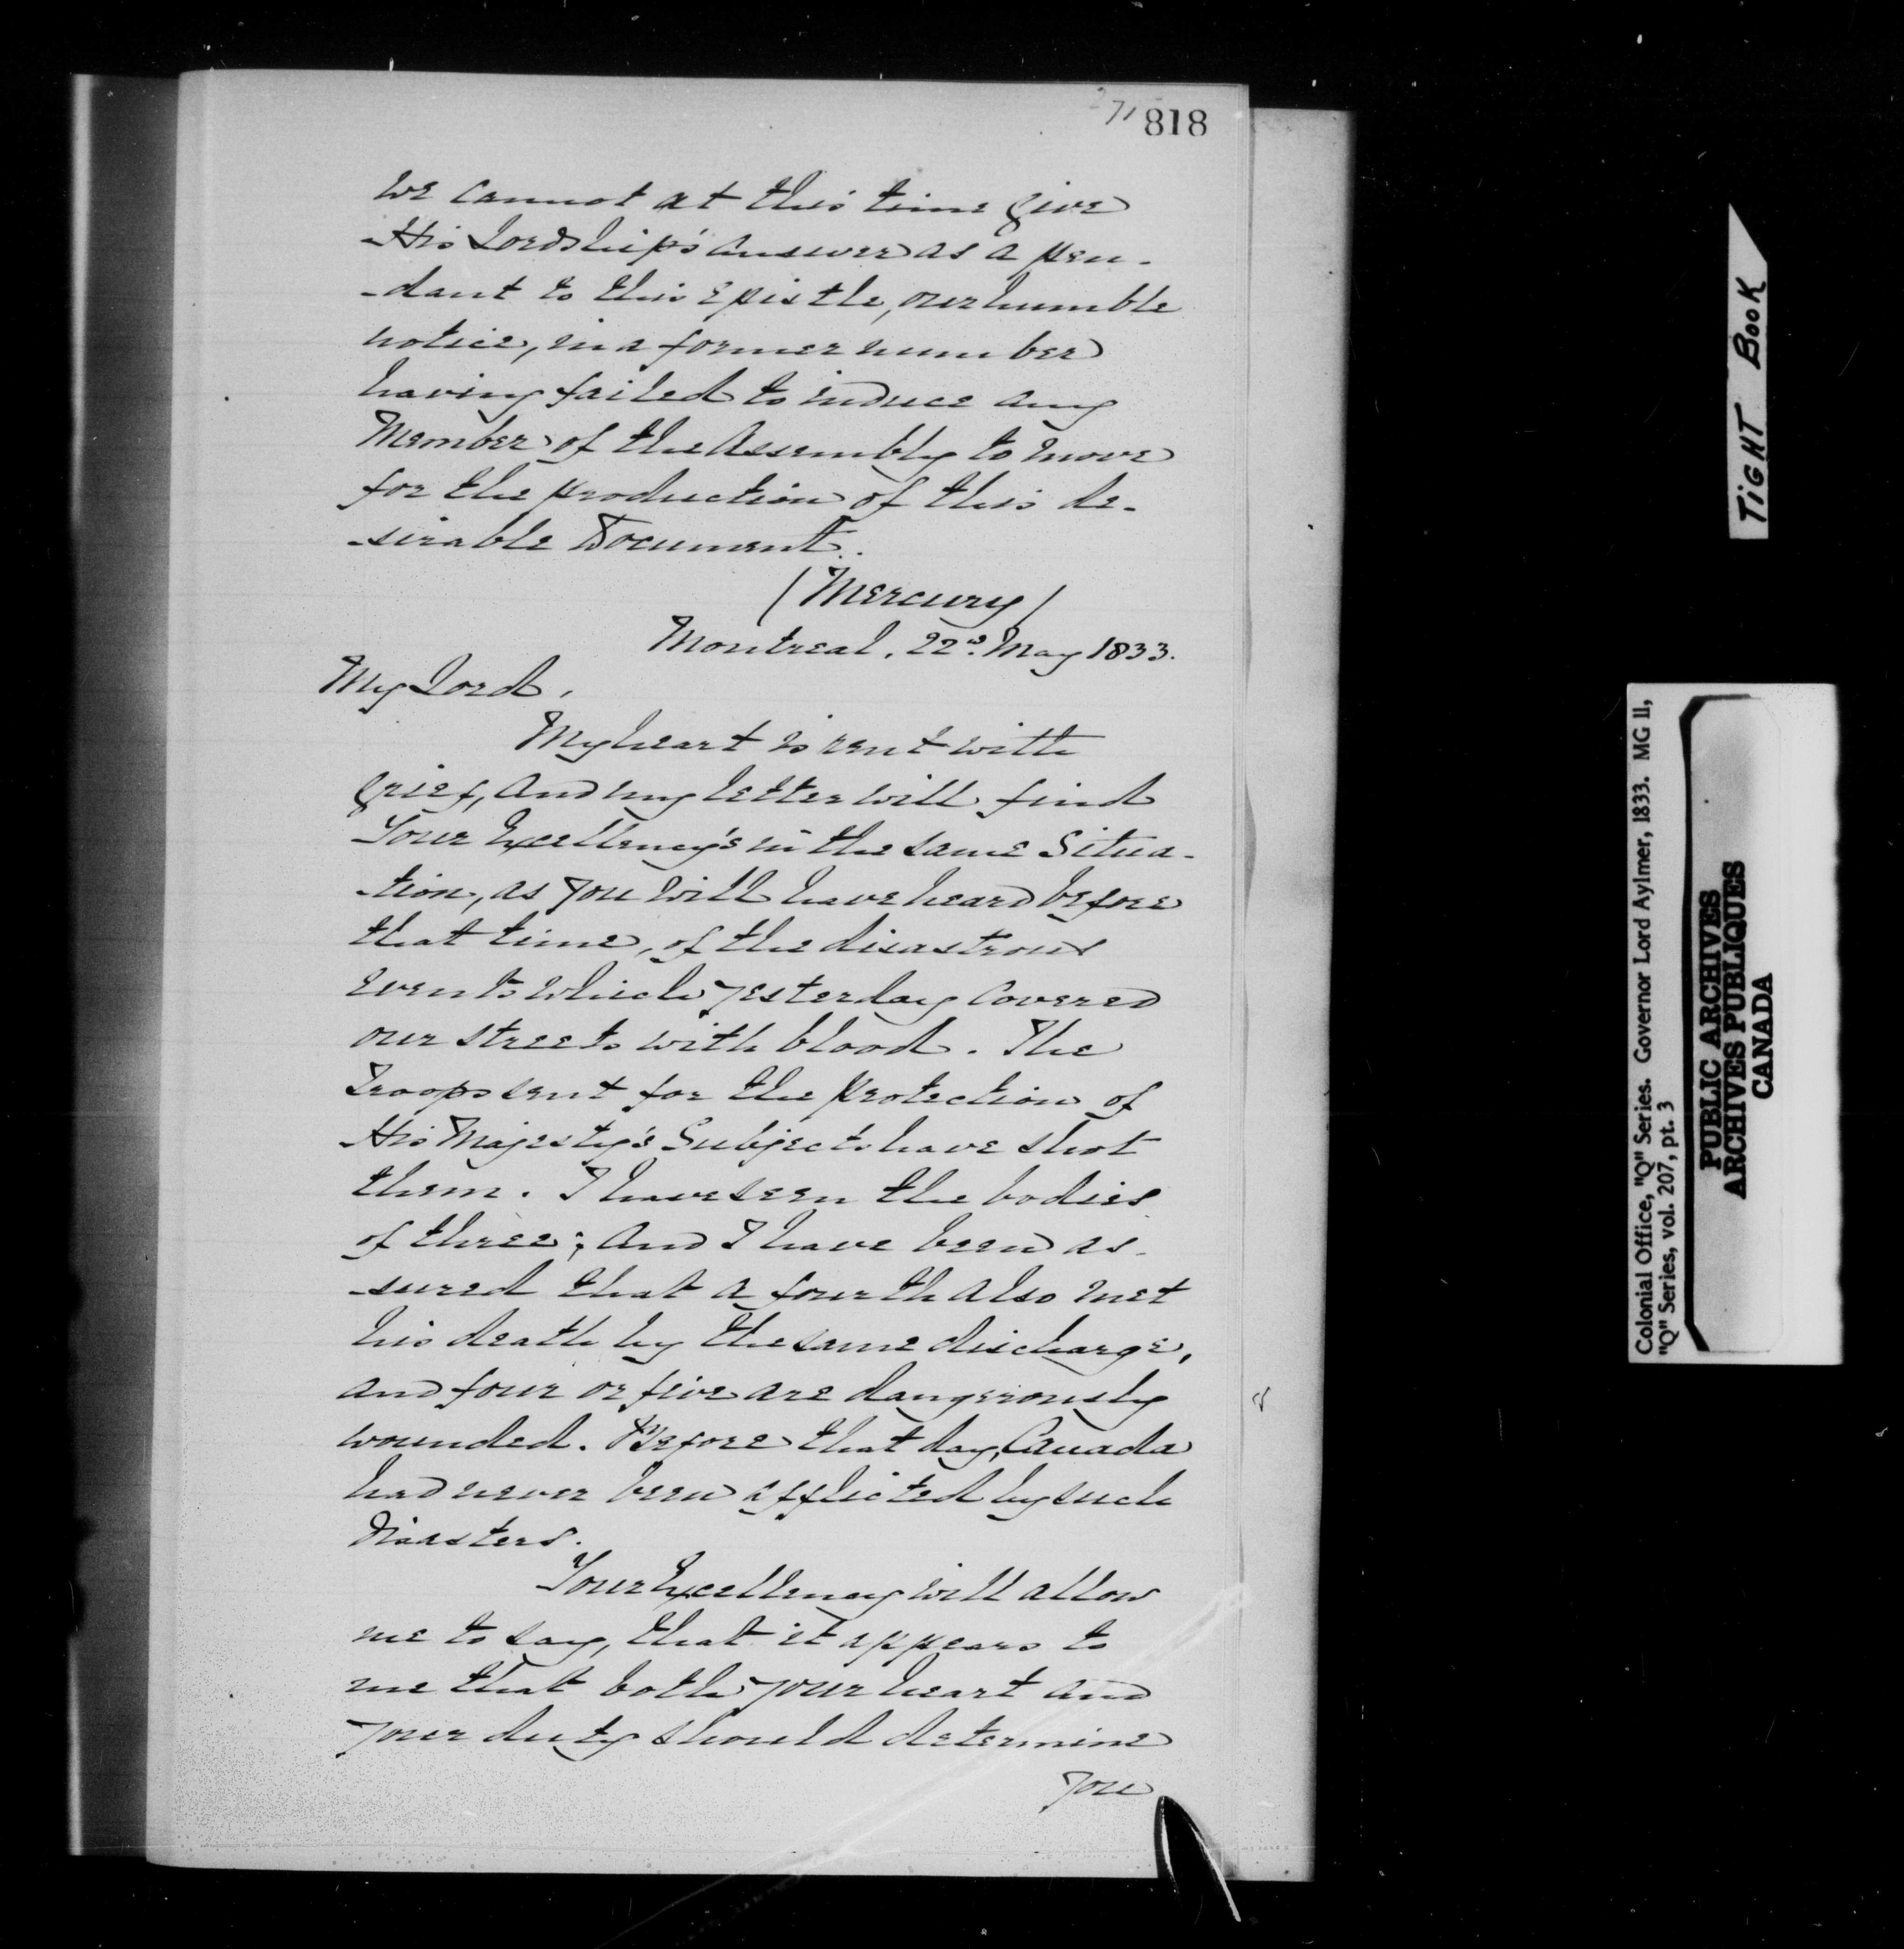 271
818
We cannot at this time give
His Lordship's answer as a pen-
-dant to this Epistle, our humble
notice, in a former number
having failed to induce any
Member of the Assembly to move
for the production of this de-
-sirable Document.
(Mercury)
Montreal, 22nd. May 1833.
My Lord,
My heart is rent with
grief, and my letter will find
Your Excellency's in the same Situa-
-tion, as you will have heard before
that time, of the disastrous
events which yesterday covered
our streets with blood. The
Troops sent for the protection of
His Majesty's Subjects have shot
them. I have seen the bodies
of three; and I have been as-
-sured that a fourth also met
his death by the same discharge,
and four or five are dangerously
wounded. Before that day, Canada
had never been afflicted by such
disasters.
Your Excellency will allow
me to say, that it appears to
me that both your heart and
your duty should determine
you
TIGHT BOOK
Colonial Office, "Q" Series. Governor Lord Aylmer, 1833. MG 11,
"Q" Series, vol. 207, pt. 3
PUBLIC ARCHIVES
ARCHIVES PUBLIQUES
CANADA